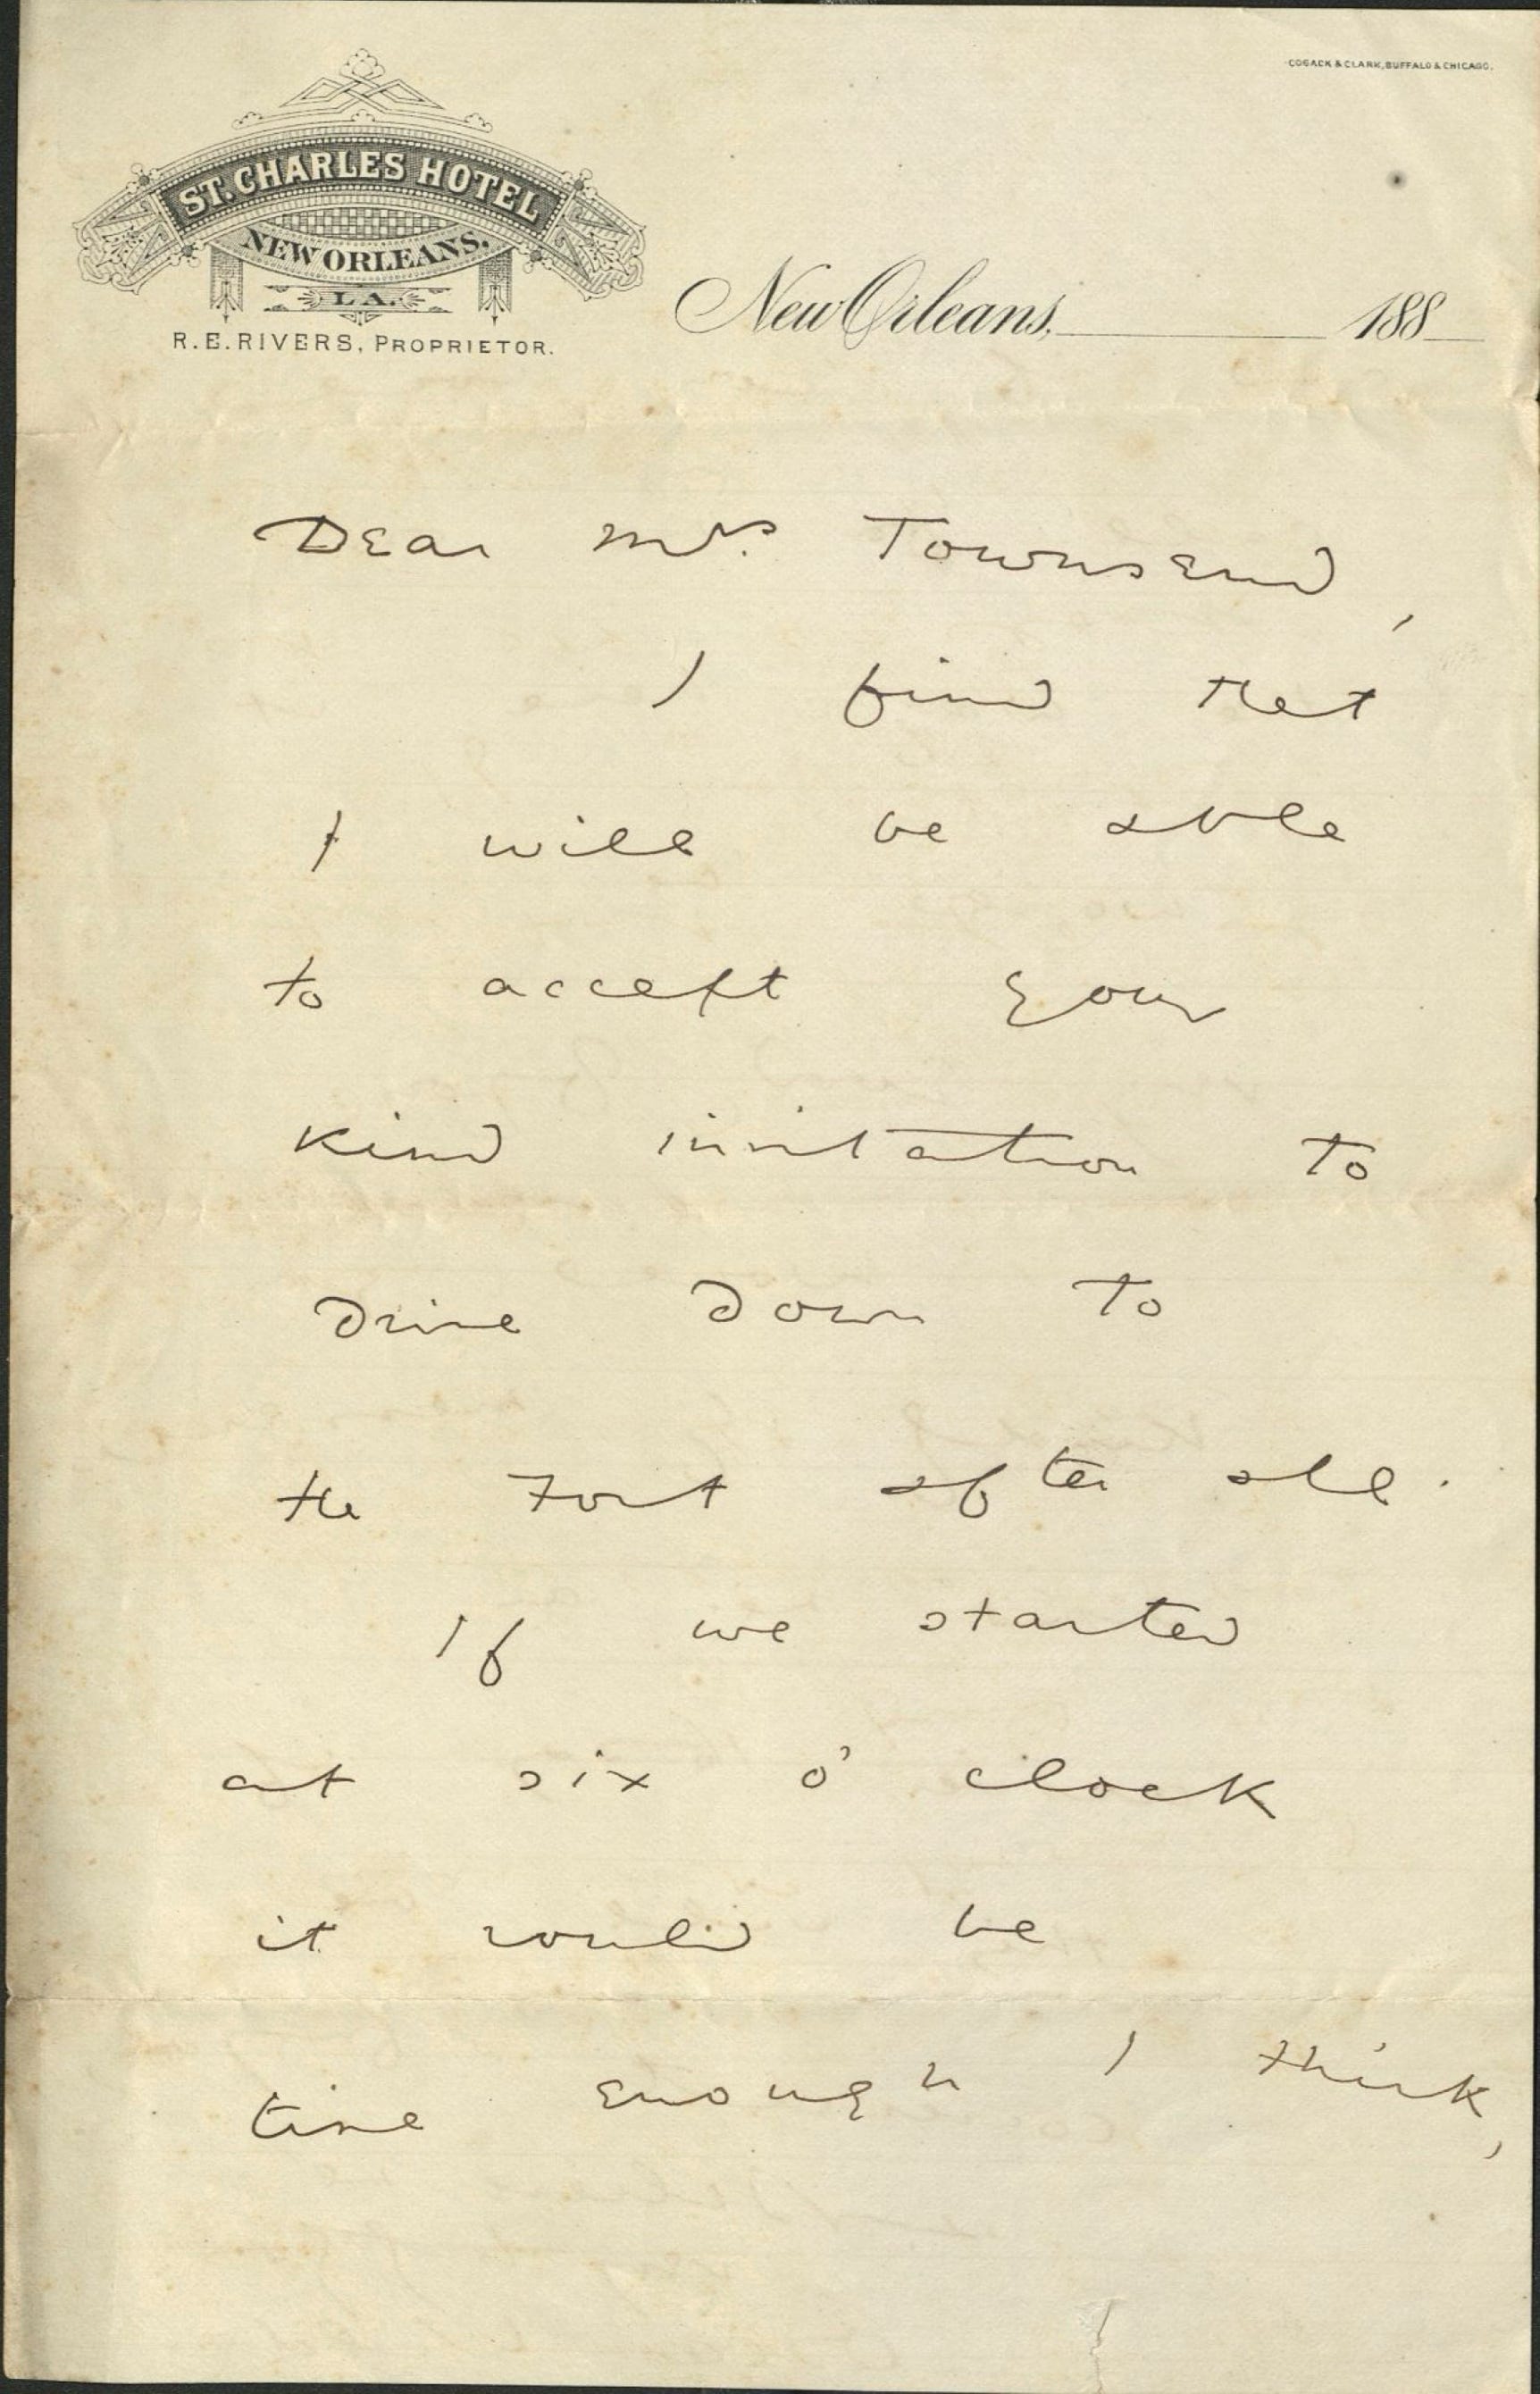 COSACK & CLARK, BUFFALO & CHICAGO.
ST. CHARLES HOTEL
NEW ORLEANS.
LA.
R. E. RIVERS, PROPRIETOR.
New Orleans, 188
Dear Mrs. Townsend,
I find that
I will be able
to accept your
kind invitation to
drive down to
the Fort after all.
If we started
at six o'clock
it would be
time enough I think,